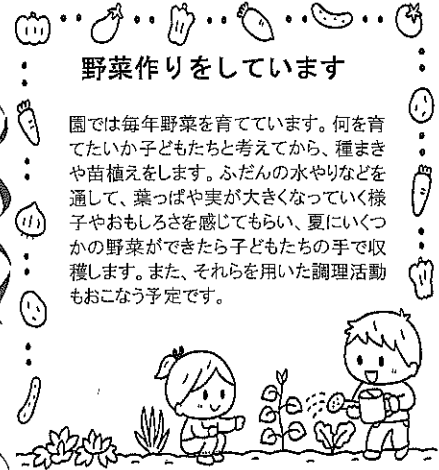 野菜作りをしています
園では毎年野菜を育てています。何を育
てたいか子どもたちと考えてから、種まき
や苗植えをします。ふだんの水やりなどを
通して、葉っぱや実が大きくなっていく様
子やおもしろさを感じてもらい、夏にいくつ
かの野菜ができたら子どもたちの手で収
穫します。また、それらを用いた調理活動
もおこなう予定です。